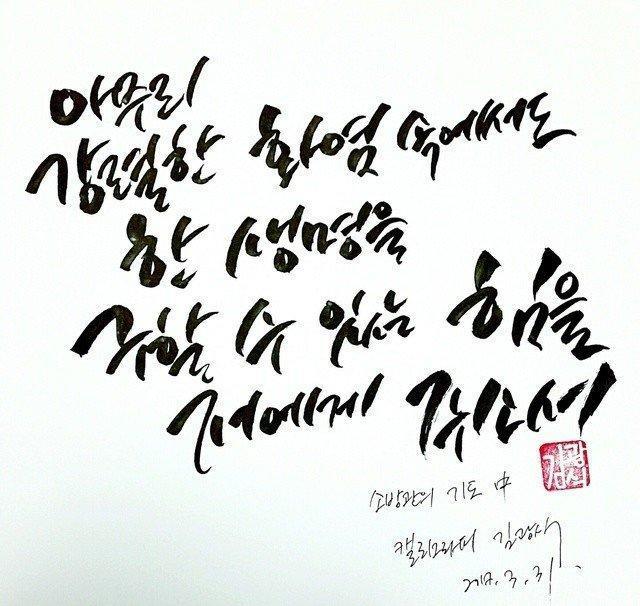 아무리
강렬한 화염 속에서도
한 생명을
구할 수 있는 힘을
저에게 주소서
김광석
소방관의 기도 中
캘리그라피 김광석
3. 31.